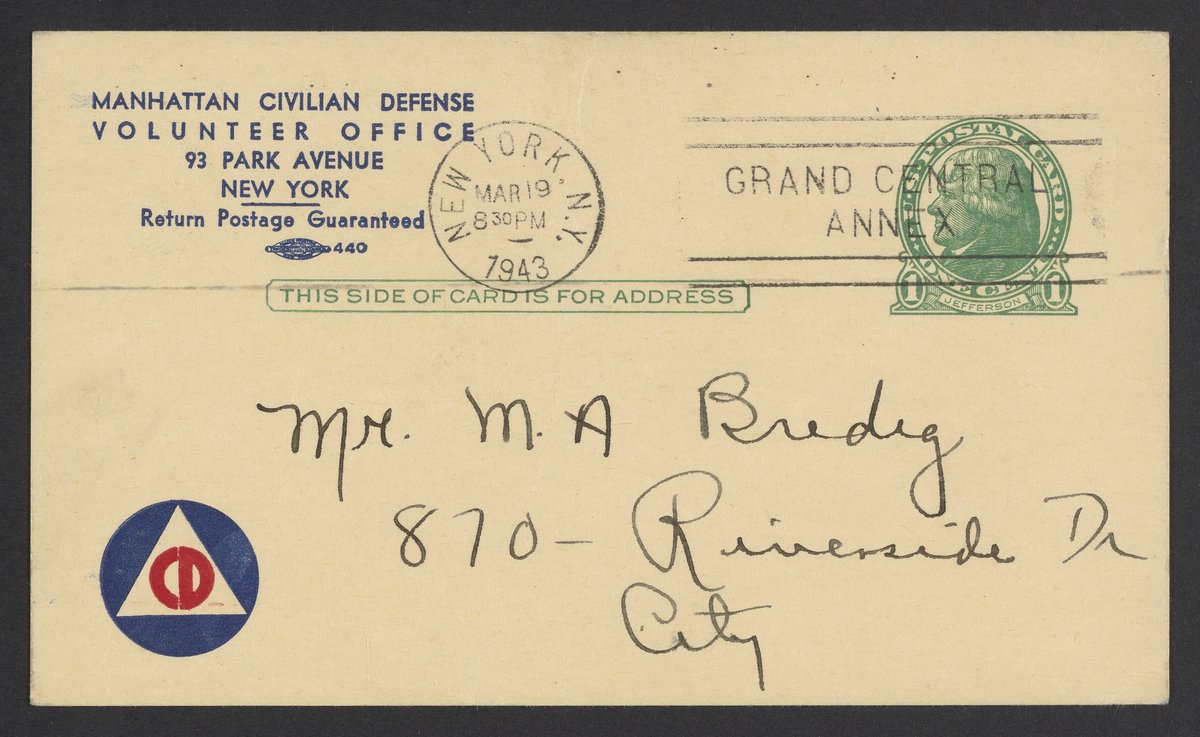 MANHATTAN CIVILIAN DEFENSE
VOLUNTEER OFFICE
93 PARK AVENUE
NEW YORK
Return Postage Guaranteed
440
NEW YORK, N.Y.
MAR 19
8 30 PM
1943
GRAND CENTRAL
ANNEX
U.S. POSTAL CARD
ONE CENT
1 JEFFERSON 1
THIS SIDE OF CARD IS FOR ADDRESS
Mr. M. A Bredig
870 - Riverside Dr
City
CD